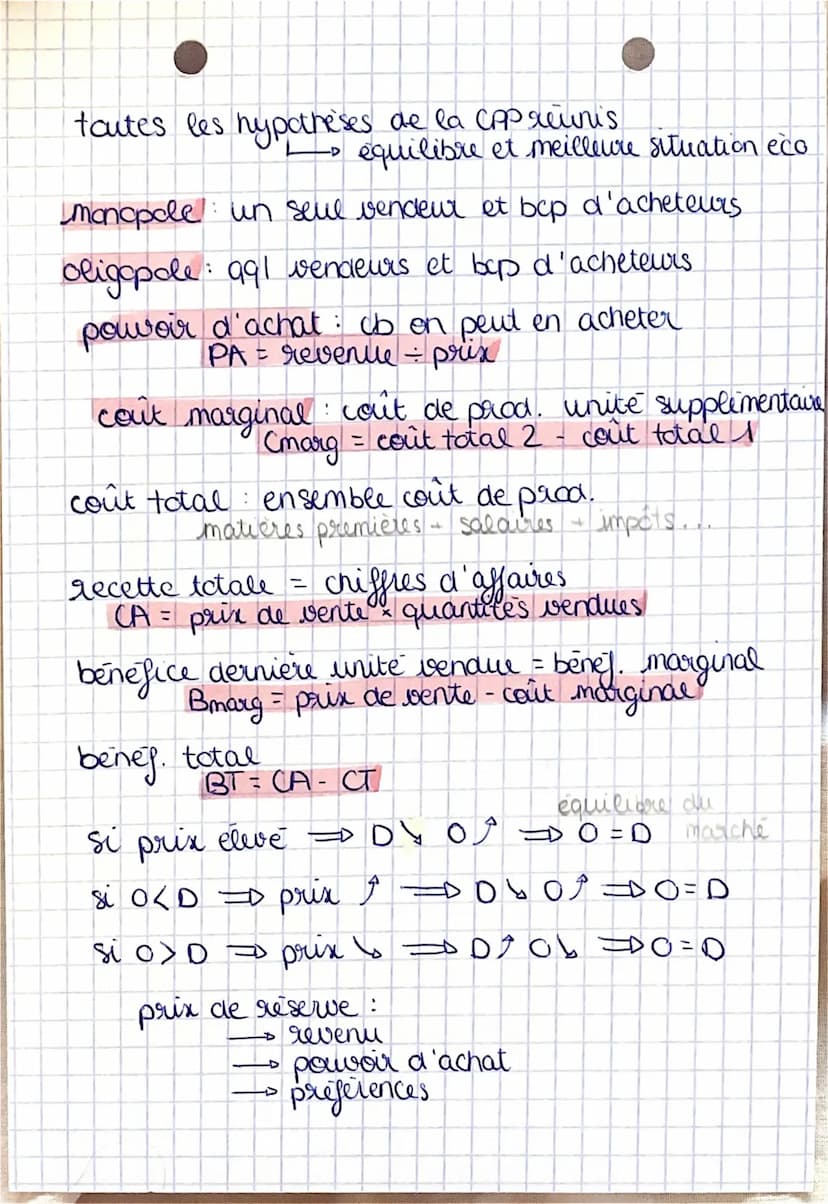 toutes les hypothèses de la CPP réunis
↳ équilibre et meilleure situation éco
monopole : un seul vendeur et bcp d'acheteurs
oligopole : qql vendeurs et bcp d'acheteurs
pouvoir d'achat : cb on peut en acheter
PA = revenue ÷ prix
coût marginal : coût de prod. unité supplémentaire
Cmarg = coût total 2 - coût total 1
coût total : ensemble coût de prod.
matières premières + salaires + impôts...
recette totale = chiffres d'affaires
CA = prix de vente × quantités vendues
bénéfice dernière unité vendue = bénéf. marginal
Bmarg = prix de vente - coût marginal
bénéf. total
BT = CA - CT
équilibre du
si prix élevé ⇒ D↘ O↗ ⇒ O = D marché
si O < D ⇒ prix ↗ ⇒ D↘ O↗ ⇒ O = D
si O > D ⇒ prix ↘ ⇒ D↗ O↘ ⇒ O = D
prix de réserve :
→ revenu
→ pouvoir d'achat
→ préférences